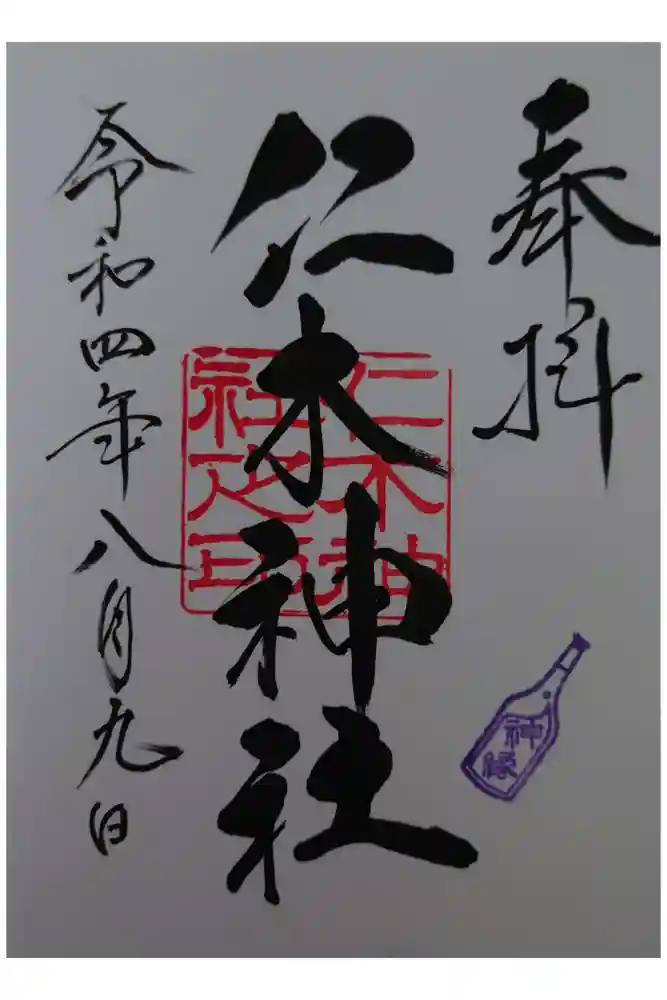 奉拝
仁木神社
仁木神
社之印
令和四年八月九日
神縁